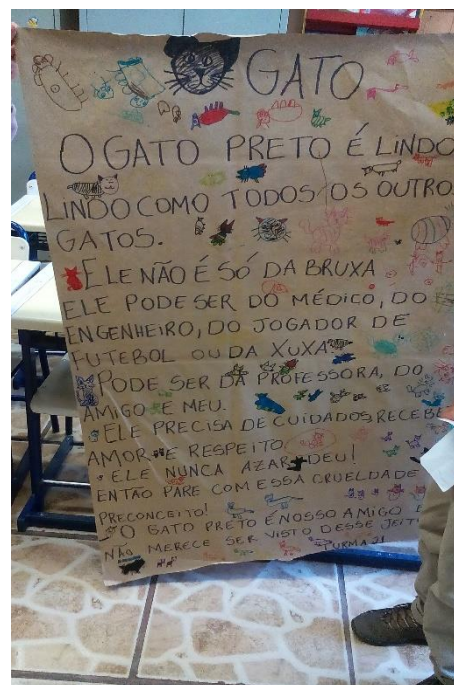 GATO
O GATO PRETO É LINDO
LINDO COMO TODOS OS OUTRO
GATOS.
ELE NÃO É SÓ DA BRUXA
ELE PODE SER DO MÉDICO, DO
ENGENHEIRO, DO JOGADOR DE
FUTEBOL OU DA XUXA
PODE SER DA PROFESSORA, DO
AMIGO E MEU.
ELE PRECISA DE CUIDADOS, RECEBE
AMOR E RESPEITO.
ELE NUNCA AZAR DEU!
ENTÃO PARE COM ESSA CRUELDADE
PRECONCEITO!
O GATO PRETO É NOSSO AMIGO
NÃO MERECE SER VISTO DESSE JEIT
TURMA 21